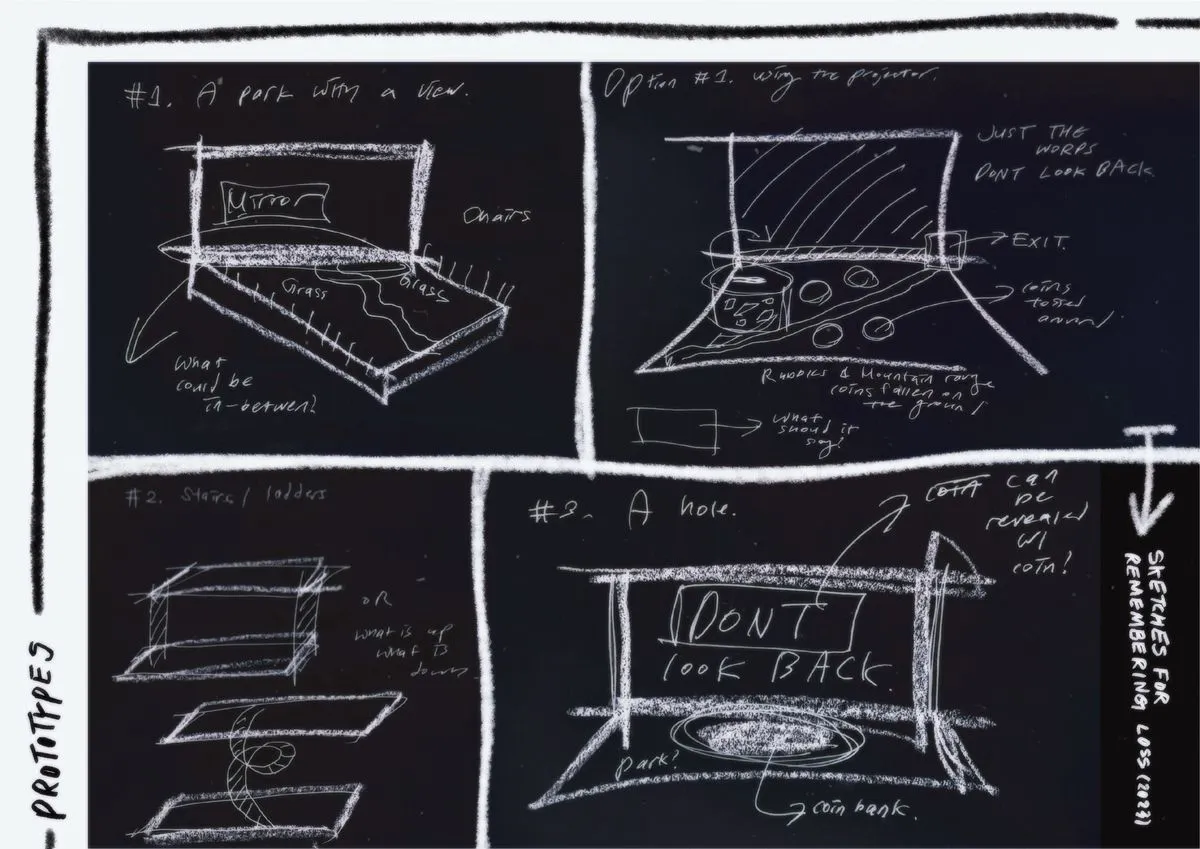 #1. A park with a view.
Mirror
Chairs
Grass
Grass
What
could be
in-between?
Option #1. Using the projector.
JUST THE
WORDS
DONT LOOK BACK
EXIT.
coins
tossed
around
Rubbles & Mountain range
coins fallen on
the ground
What
should it
say?
#2. Stairs / ladders
OR
what is up
what is
down
#3. A hole.
can
be
revealed
w/
coin!
DONT
look BACK
park?
coin bank.
PROTOTYPES
SKETCHES FOR
REMEMBERING LOSS (2023)